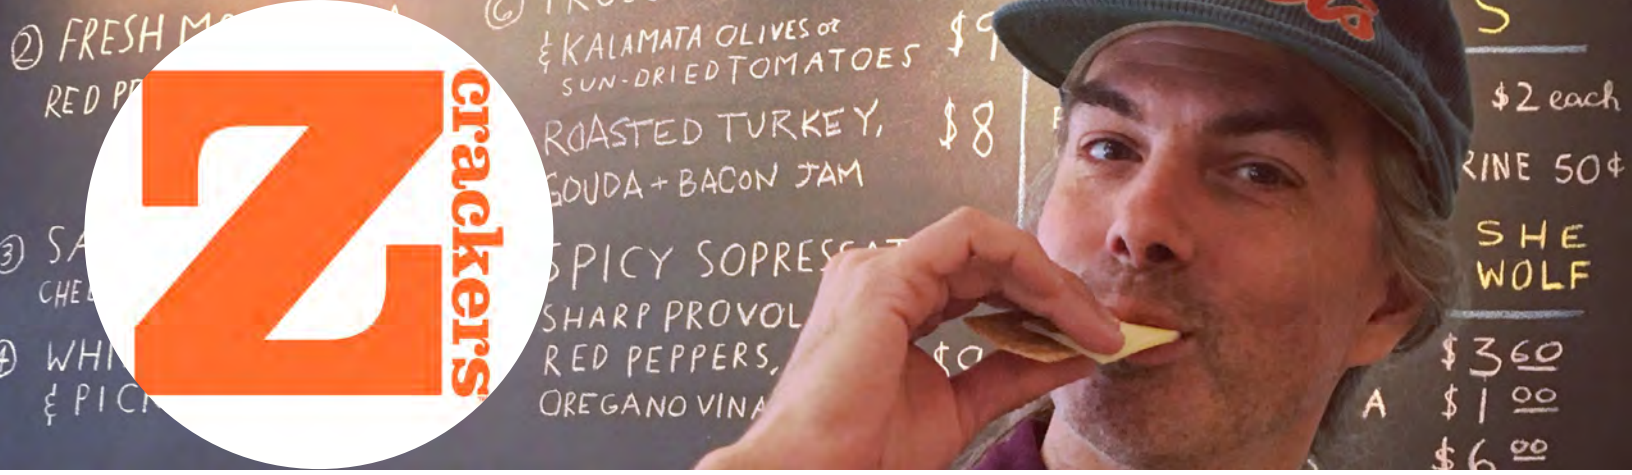 Z
crackers
② FRESH
RED
③
④
& PIC
⑥
& KALAMATA OLIVES or
SUN-DRIED TOMATOES
$9
ROASTED TURKEY,
$8
GOUDA + BACON JAM
SPICY SOPRESSAT
SHARP PROVOL
RED PEPPERS,
OREGANO VINA
S
$2 each
RINE 50¢
SHE
WOLF
$3 60
A $1 00
$6 00